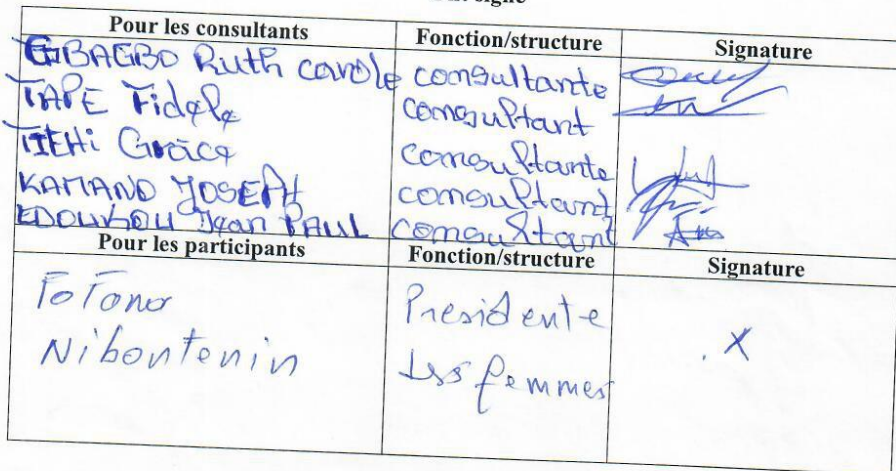 signé
Pour les consultants Fonction/structure Signature
GBAGBO Ruth carole consultante
TAPE Fidele consultant
Grâce consultante
KAMANO JOSEPH consultant
EDOUKOU Jean PAUL consultant
Pour les participants Fonction/structure Signature
ToTono Presidente . X
Nibontenin des femmes